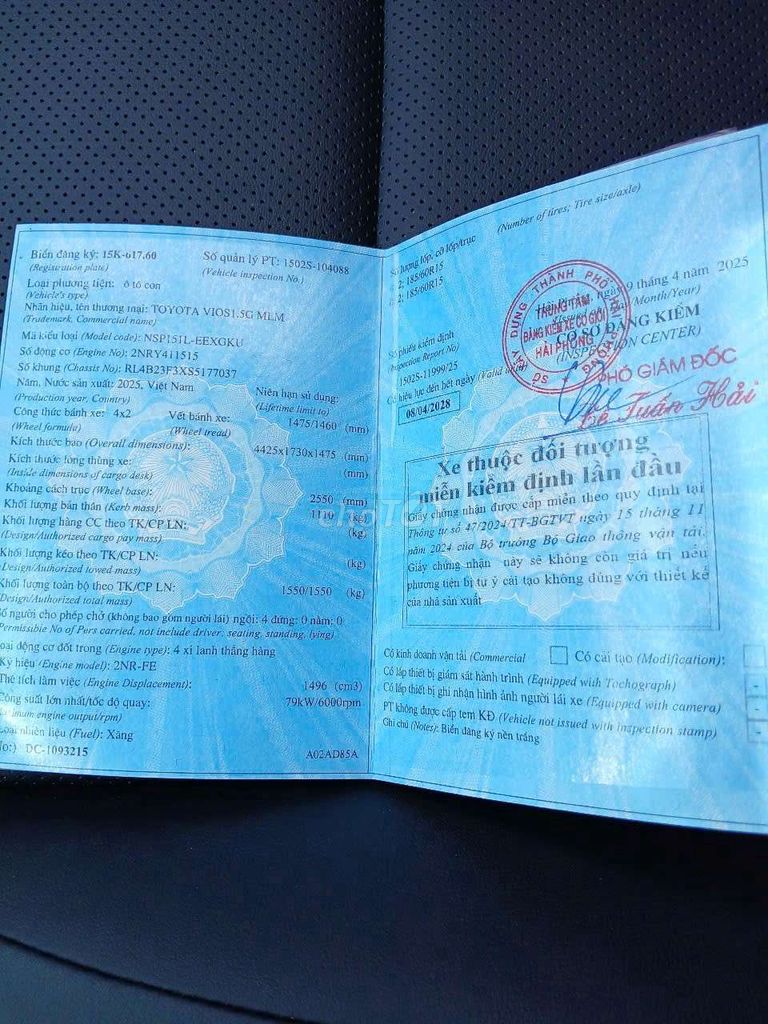 Biển đăng ký: 15K-617.60 Số quản lý PT: 1502S-104088
(Registration plate) (Vehicle inspection No.)
Loại phương tiện: ô tô con
(Vehicle's type)
Nhãn hiệu, tên thương mại: TOYOTA VIOS1.5G MLM
(Trademark, Commercial name)
Mã kiểu loại (Model code): NSP151L-EEXGKU
Số động cơ (Engine No): 2NRY411515
Số khung (Chassis No): RL4B23F3XS5177037
Năm, Nước sản xuất: 2025, Việt Nam Niên hạn sử dụng:
(Production year, Country) (Lifetime limit to)
Công thức bánh xe: 4x2 Vết bánh xe: 1475/1460 (mm)
(Wheel formula) (Wheel tread)
Kích thước bao (Overall dimensions): 4425x1730x1475 (mm)
Kích thước lòng thùng xe: (mm)
(Inside dimensions of cargo desk)
Khoảng cách trục (Wheel base): 2550 (mm)
Khối lượng bản thân (Kerb mass): 1110 (kg)
Khối lượng hàng CC theo TK/CP LN: (kg)
(Design/Authorized cargo pay mass)
Khối lượng kéo theo TK/CP LN: (kg)
(Design/Authorized towed mass)
Khối lượng toàn bộ theo TK/CP LN: 1550/1550 (kg)
(Design/Authorized total mass)
Số người cho phép chở (không bao gồm người lái) ngồi: 4 đứng: 0 nằm: 0
(Permissible No of Pers carried, not include driver: seating, standing, lying)
Loại động cơ đốt trong (Engine type): 4 xi lanh thẳng hàng
Ký hiệu (Engine model): 2NR-FE
Thể tích làm việc (Engine Displacement): 1496 (cm3)
Công suất lớn nhất/tốc độ quay: 79kW/6000rpm
(Maximum engine output/rpm)
Loại nhiên liệu (Fuel): Xăng
No:) DC-1093215 A02AD85A
(Number of tires; Tire size/axle)
Số lượng lốp, cỡ lốp/trục
2; 185/60R15
2; 185/60R15
ngày 9 tháng 4 năm 2025
Day/Month/Year)
CƠ SỞ ĐĂNG KIỂM
(INSPECTION CENTER)
SỞ XÂY DỰNG THÀNH PHỐ HẢI PHÒNG
TRUNG TÂM
ĐĂNG KIỂM XE CƠ GIỚI
HẢI PHÒNG
PHÓ GIÁM ĐỐC
Lê Tuấn Hải
Số phiếu kiểm định
(Inspection Report No)
1502S-11999/25
Có hiệu lực đến hết ngày (Valid
08/04/2028
Xe thuộc đối tượng
miễn kiểm định lần đầu
Giấy chứng nhận được cấp miễn theo quy định tại
Thông tư số 47/2024/TT-BGTVT ngày 15 tháng 11
năm 2024 của Bộ trưởng Bộ Giao thông vận tải.
Giấy chứng nhận này sẽ không còn giá trị nếu
phương tiện bị tự ý cải tạo không đúng với thiết kế
của nhà sản xuất
Có kinh doanh vận tải (Commercial Có cải tạo (Modification):
Có lắp thiết bị giám sát hành trình (Equipped with Tachograph)
Có lắp thiết bị ghi nhận hình ảnh người lái xe (Equipped with camera)
PT không được cấp tem KĐ (Vehicle not issued with inspection stamp)
Ghi chú (Notes): Biển đăng ký nền trắng
choTỐT